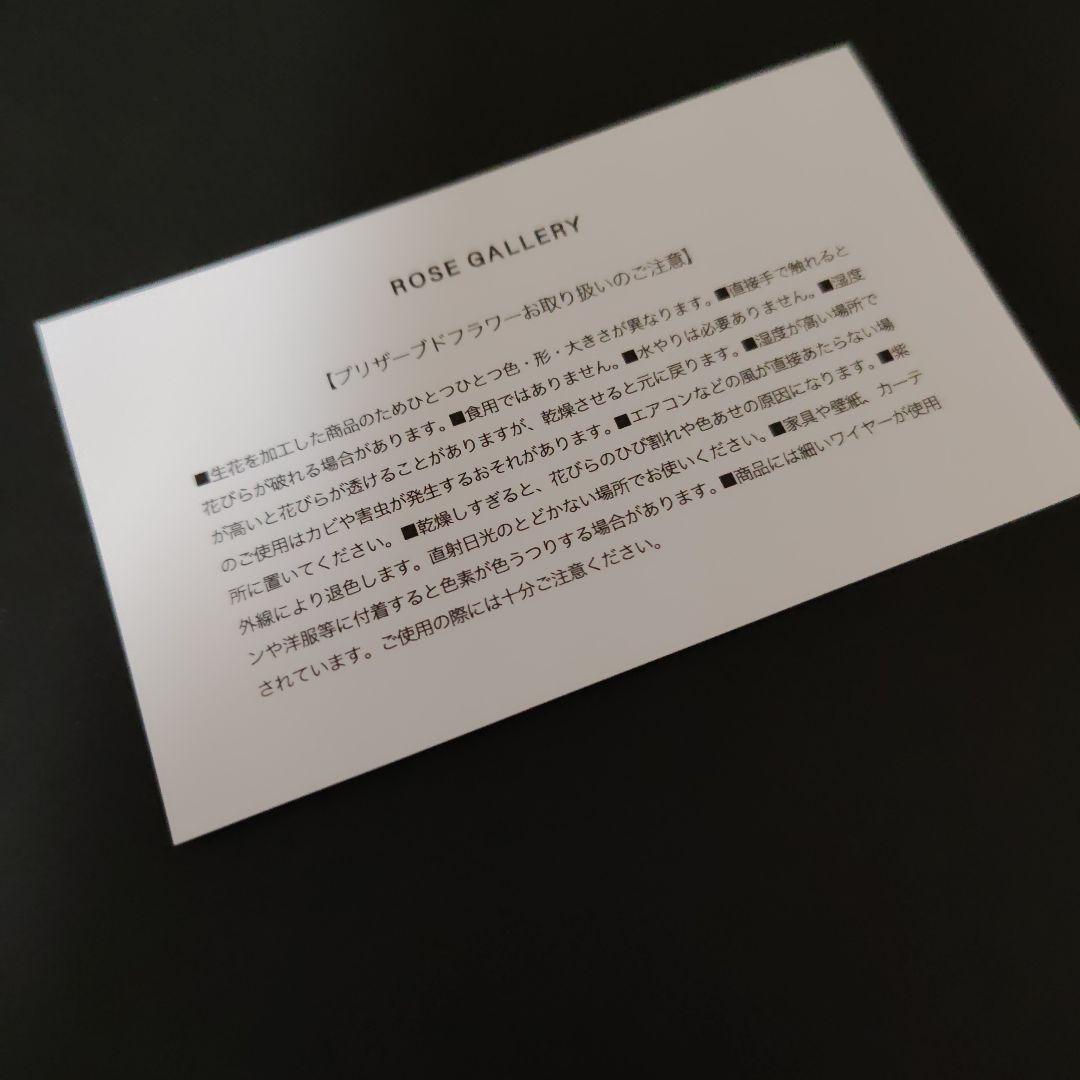 ROSE GALLERY
【プリザーブドフラワーお取り扱いのご注意】
■生花を加工した商品のためひとつひとつ色・形・大きさが異なります。■直接手で触れると
花びらが破れる場合があります。■食用ではありません。■水やりは必要ありません。■湿度
が高いと花びらが透けることがありますが、乾燥させると元に戻ります。■湿度が高い場所で
のご使用はカビや害虫が発生するおそれがあります。■エアコンなどの風が直接あたらない場
所に置いてください。■乾燥しすぎると、花びらのひび割れや色あせの原因になります。■紫
外線により退色します。直射日光のとどかない場所でお使いください。■家具や壁紙、カーテ
ンや洋服等に付着すると色素が色うつりする場合があります。■商品には細いワイヤーが使用
されています。ご使用の際には十分ご注意ください。